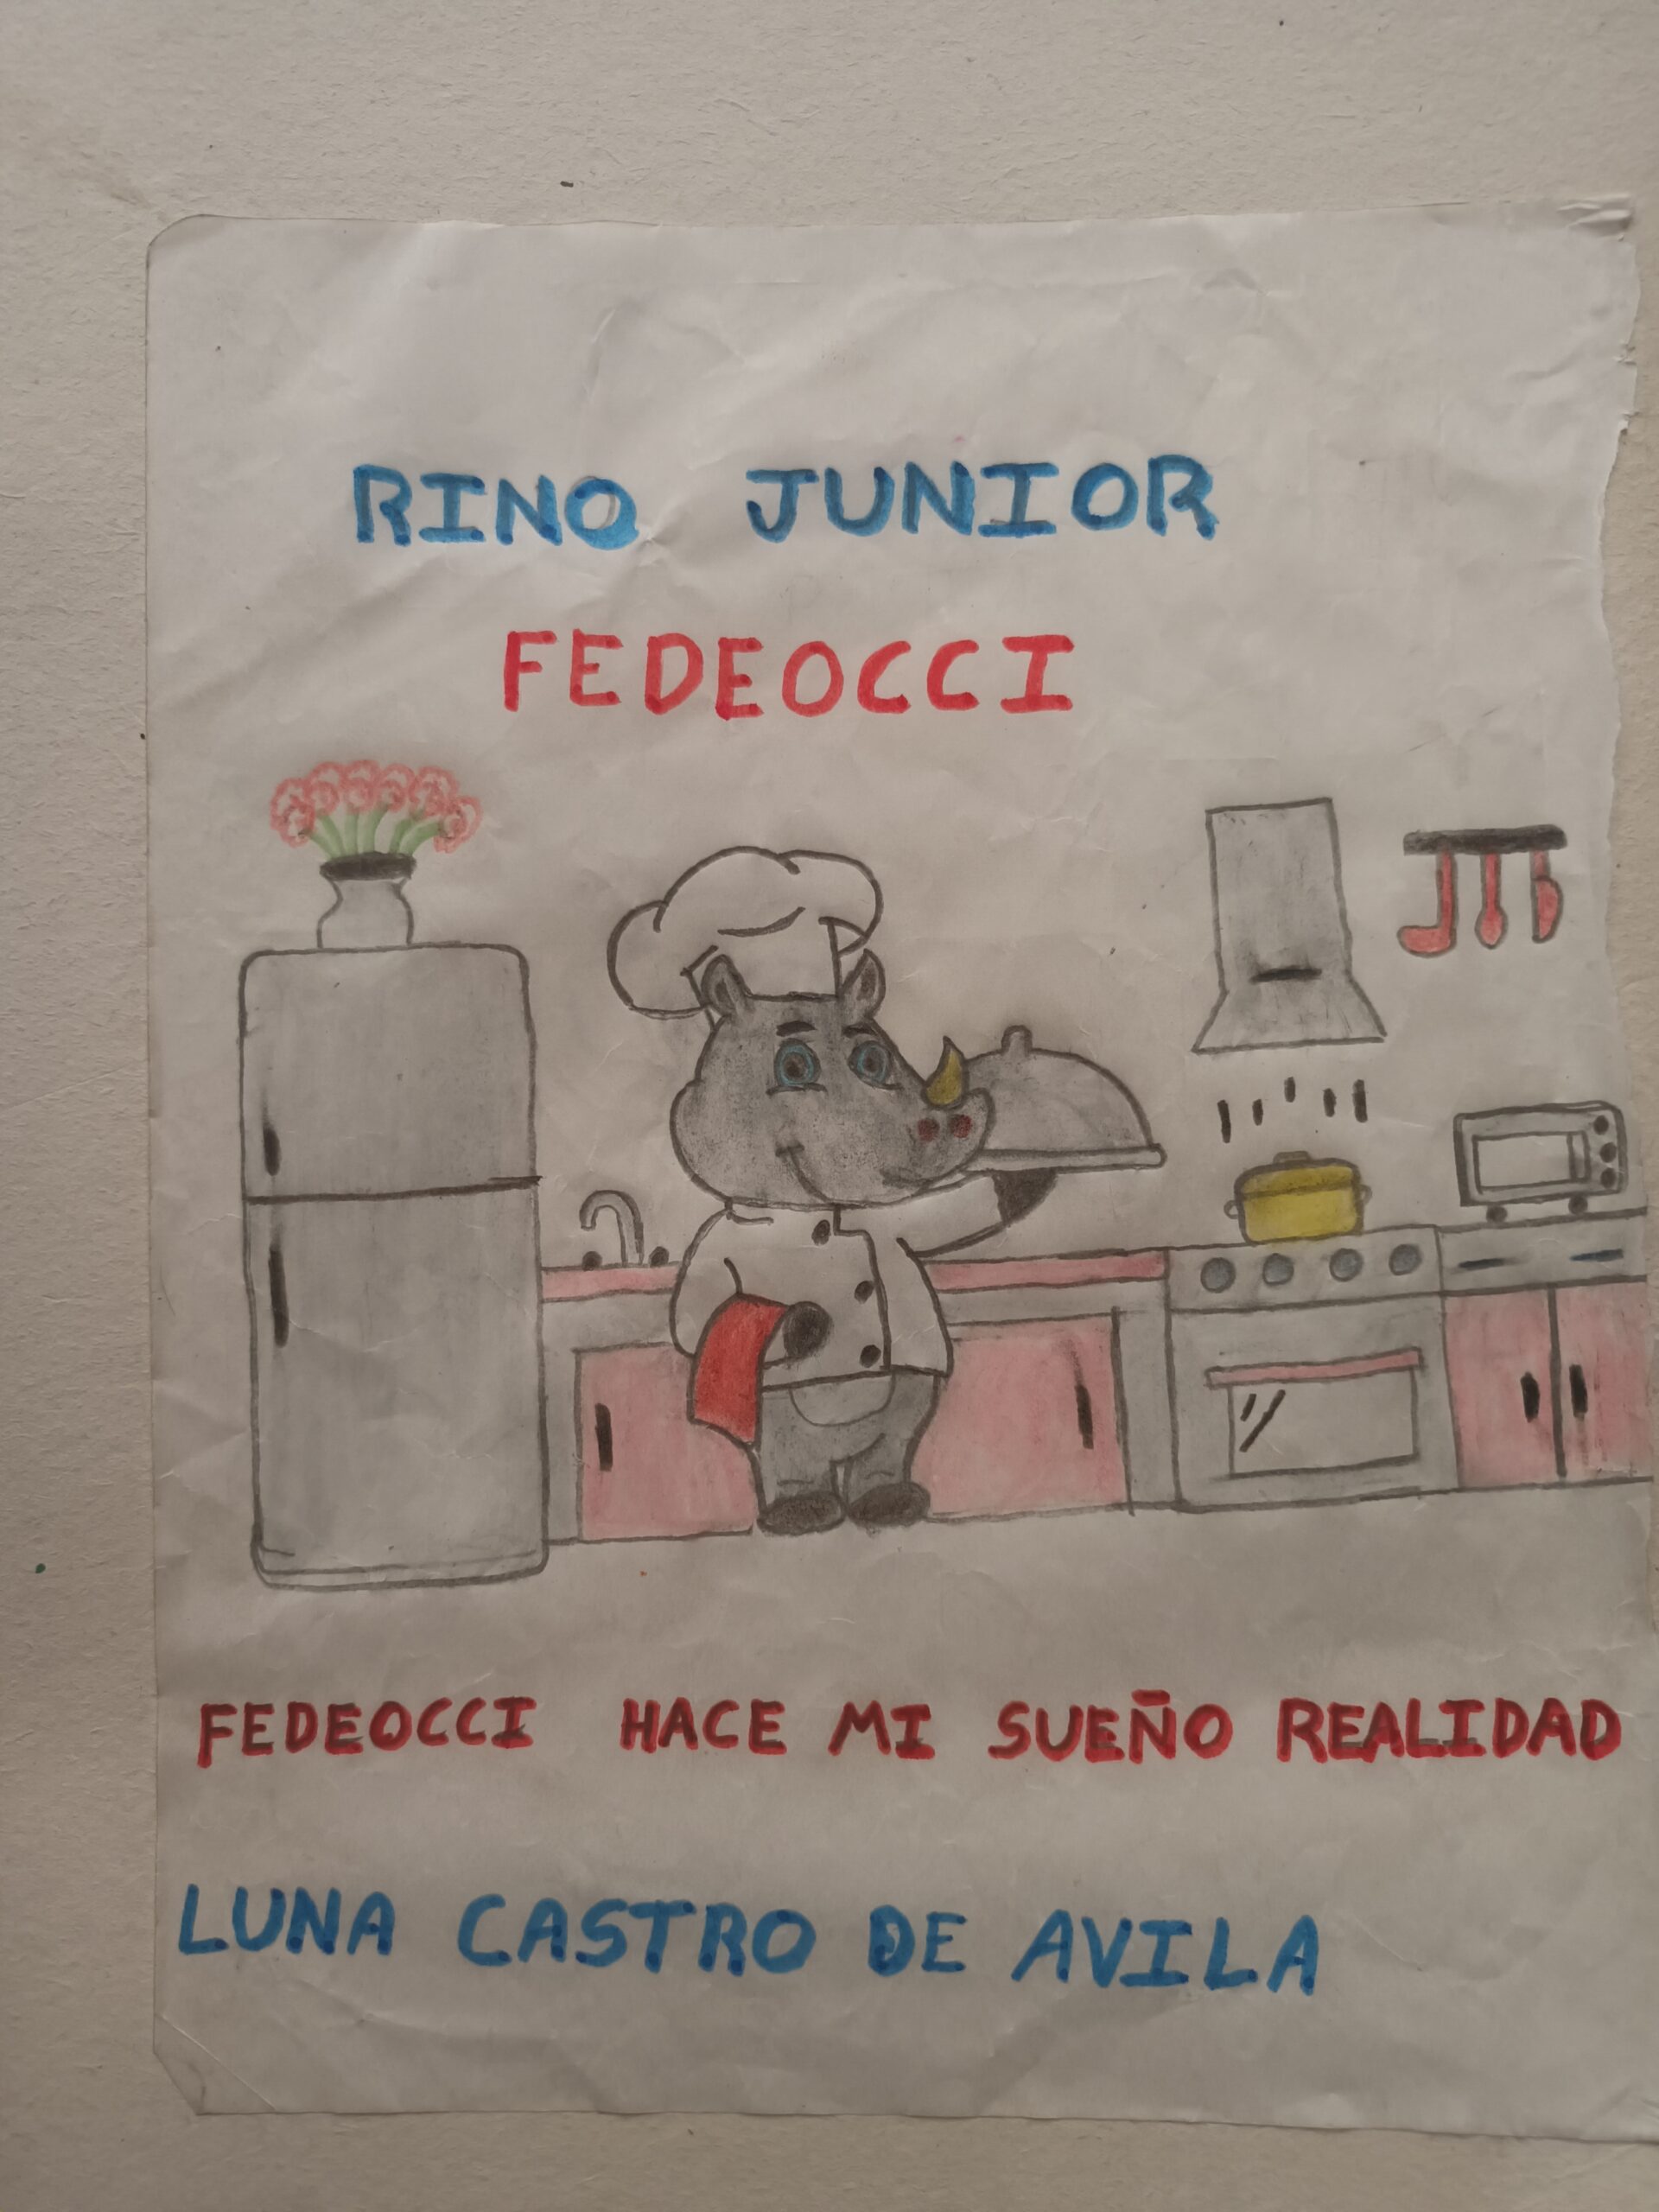 RINO JUNIOR
FEDEOCCI
FEDEOCCI HACE MI SUEÑO REALIDAD
LUNA CASTRO DE AVILA